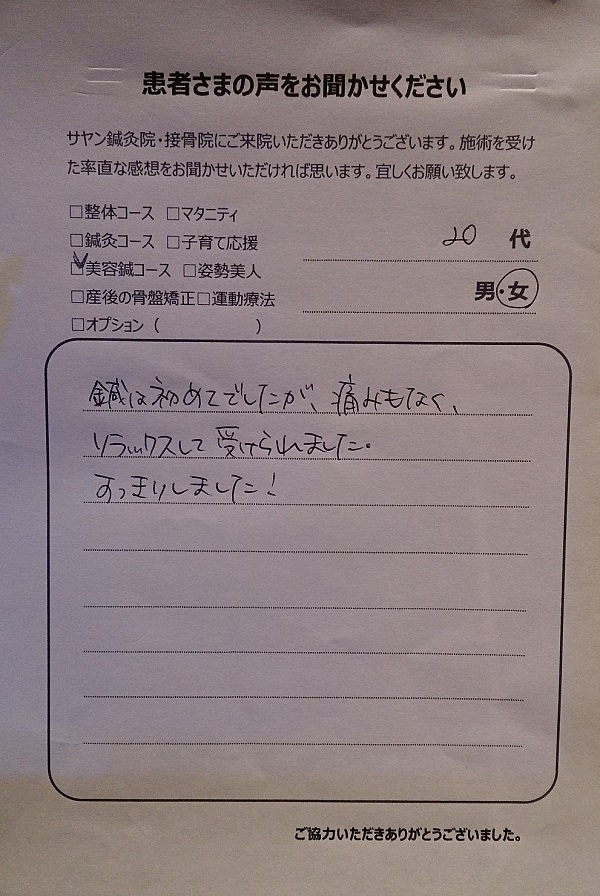 患者さまの声をお聞かせください
サヤン鍼灸院・接骨院にご来院いただきありがとうございます。施術を受け
た率直な感想をお聞かせいただければ思います。宜しくお願い致します。
□整体コース □マタニティ
□鍼灸コース □子育て応援
20 代
☑美容鍼コース □姿勢美人
男・女
□産後の骨盤矯正□運動療法
□オプション（　　　　　　）
鍼は初めてでしたが、痛みもなく、
リラックスして受けられました。
すっきりしました！
ご協力いただきありがとうございました。